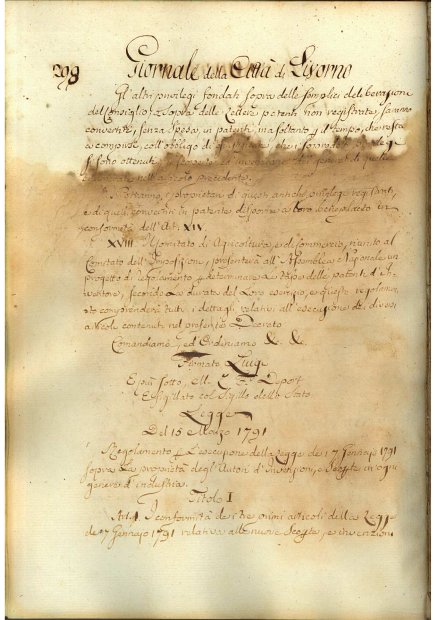 298 Giornale della Città di Livorno
Gl'altri privilegi fondati sopra delle semplici deliberazione
del Consiglio, o sopra delle Lettere patenti non registrate, saranno
convertiti, senza Spesa, in patenti, ma soltanto p il tempo, che resta
a compirsi, coll'obbligo di
ottenuti
nell'articolo precedente.
Potranno, i proprietari di questi antichi privilegi registrati,
e di quelli convertiti in patente disporne a loro
conformità dell'Art. XIV.
XVIII. Il Comitato di Agricoltura, e di Commercio, riunito al
Comitato dell'Imposizioni, presenterà all'Assemblea Nazionale un
progetto di regolamento, p determinare le tasse delle patente d'in-
ventore, secondo la durata del Loro esercizio, e questo regolamen-
to comprenderà tutti i dettagli relativi all'esecuzione de' diversi
articoli contenuti nel presente Decreto
Comandiamo, ed Ordiniamo &c. &c.
Firmato Luigi
E più sotto, M. L. F. Duport
E sigillato col Sigillo dello Stato
Legge
Del 15 Marzo 1791
Regolamento p L'esecuzione della Legge de 17 Gennajo 1791
sopra la proprietà degl'Autori d'Invenzioni, e Scoperte in ogni
genere d'industria.
Titolo I
Art. I. In conformità de' tre primi articoli della Legge
de 17 Gennajo 1791 relativa alle nuove Scoperte, e invenzioni